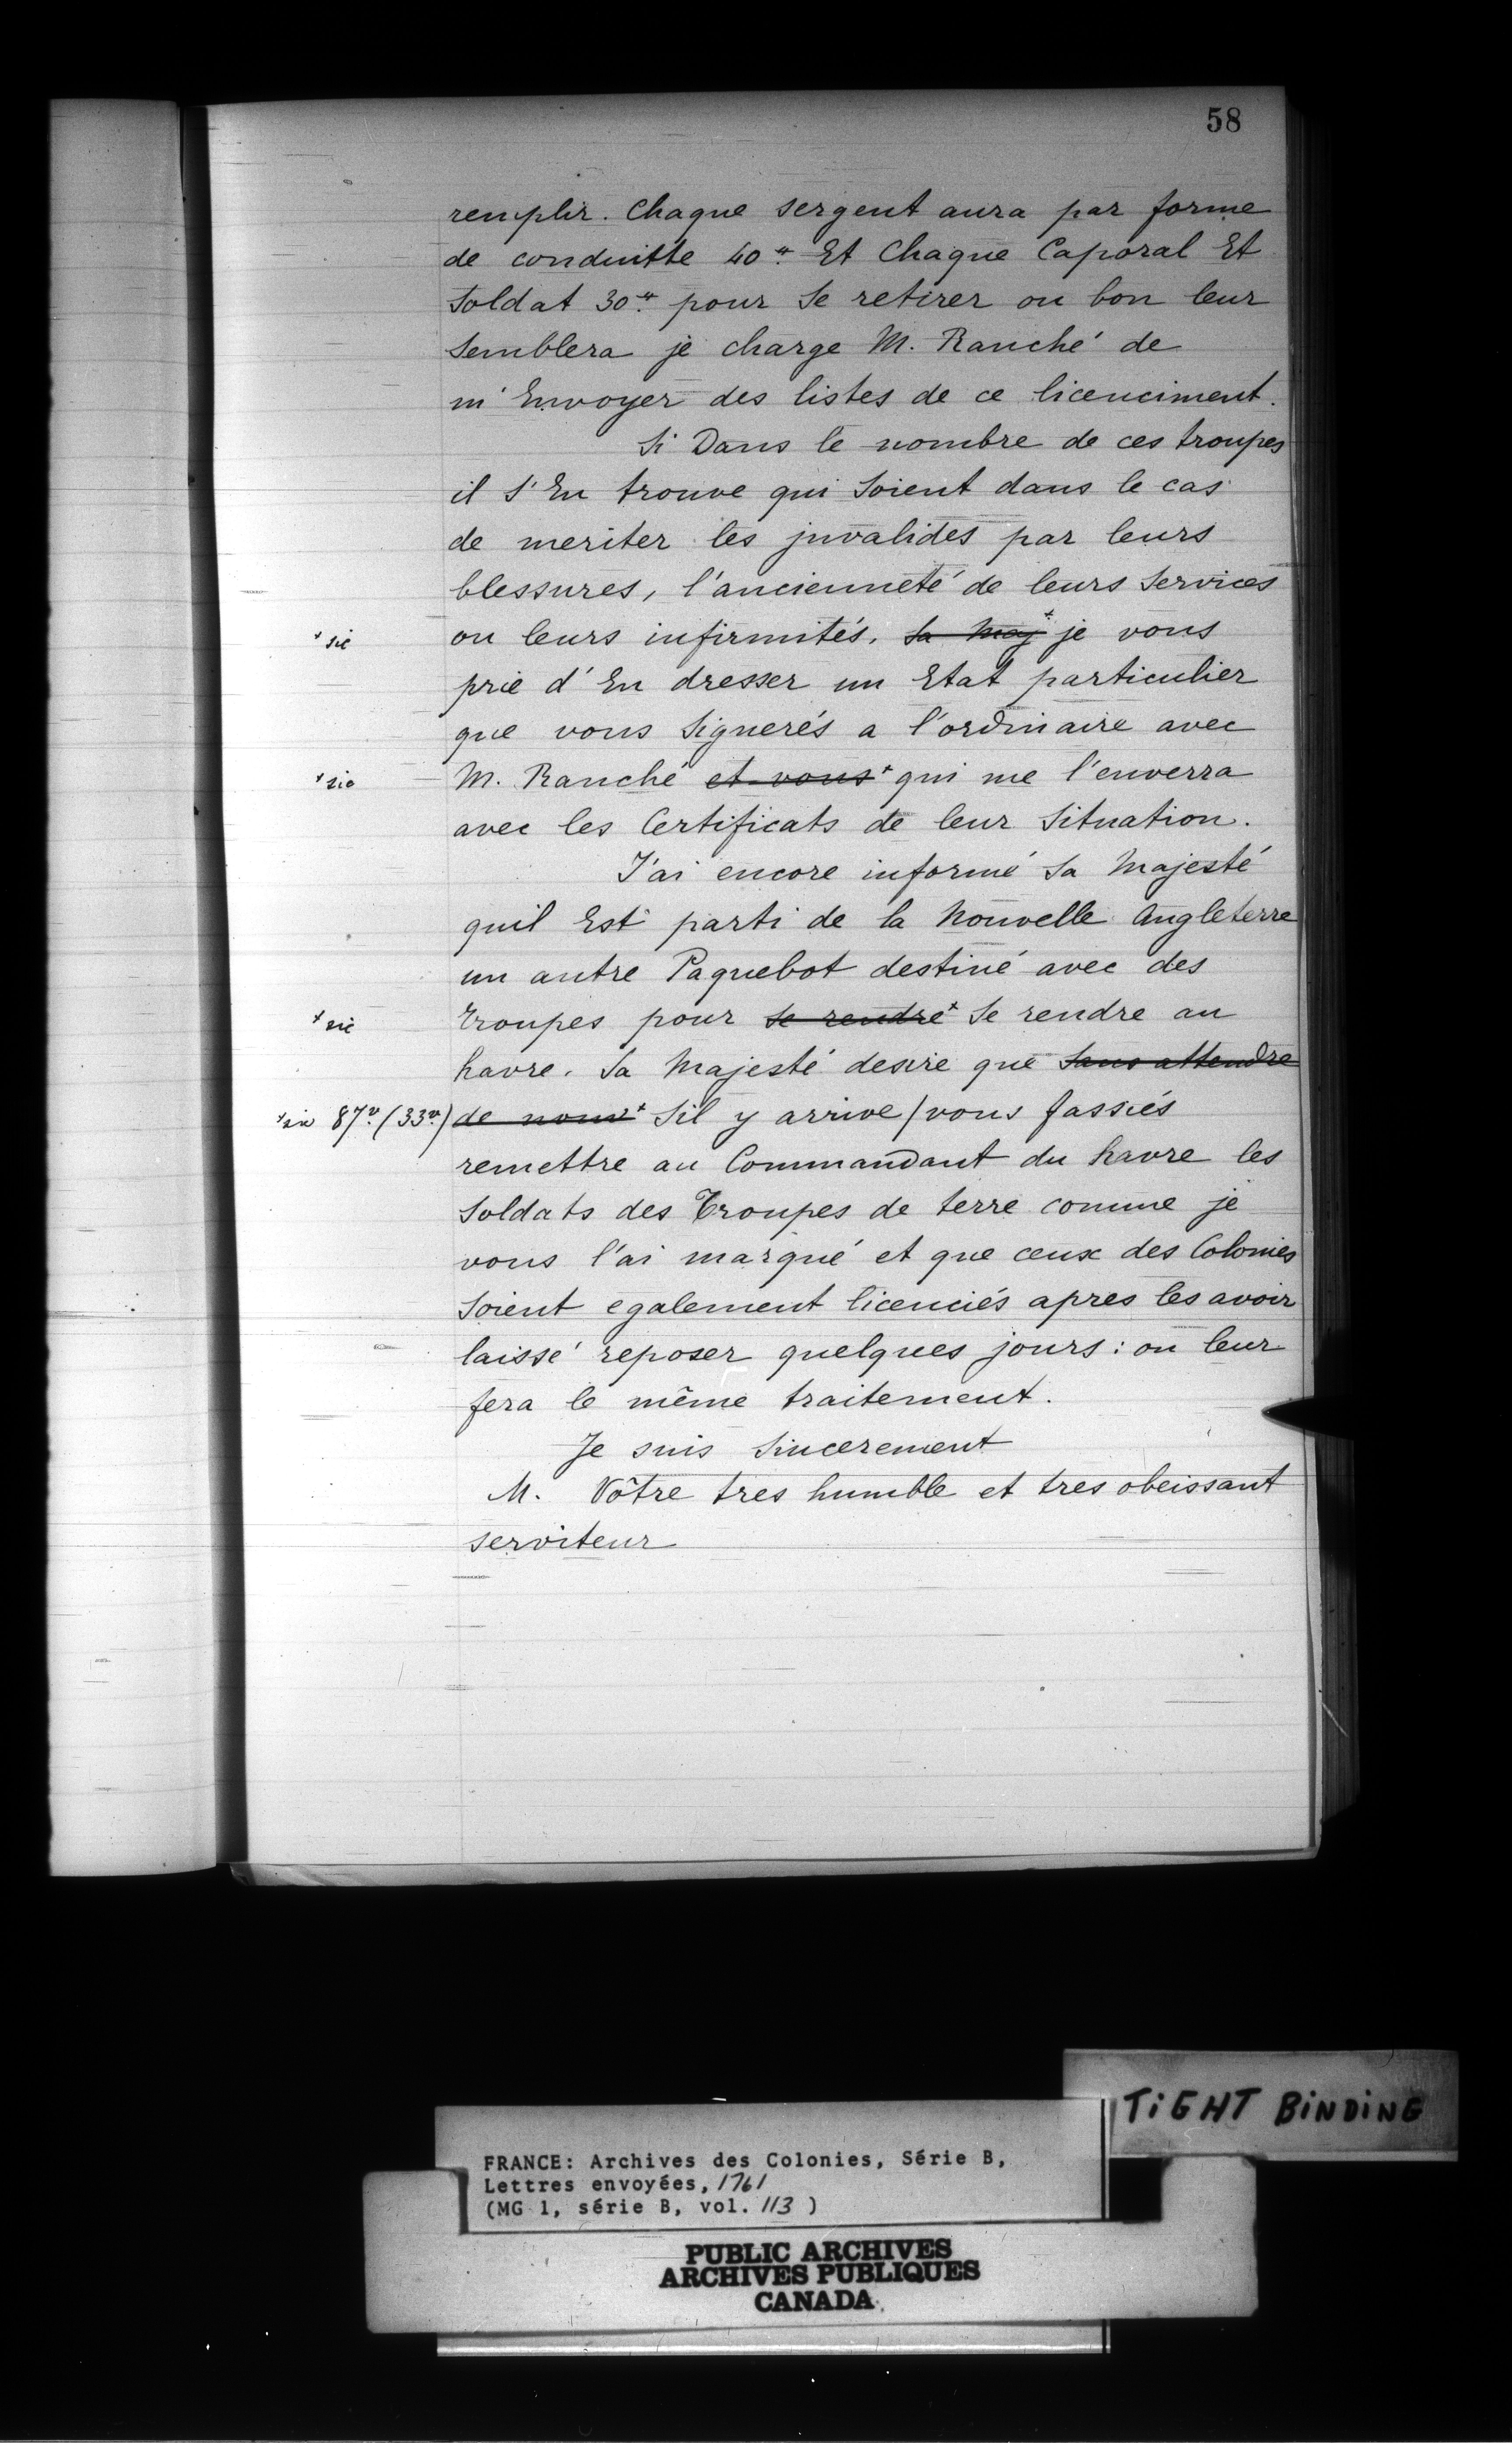 58
remplir. Chaque sergent aura par forme
de conduitte 40#. Et Chaque Caporal Et
Soldat 30#. pour Se retirer ou bon leur
Semblera je charge M. Ranché de
m'Envoyer des listes de ce licenciment.
Si Dans le nombre de ces troupes
il S'En trouve qui Soient dans le cas
de meriter les jnvalides par leurs
blessures, l'ancienneté de leurs Services
* sic ou leurs infirmités. Sa Maj* je vous
prie d'En dresser un Etat particulier
que vous Signerés a l'ordinaire avec
* sic M. Ranché et vous* qui me l'enverra
avec les Certificats de leur Situation.
J'ai encore informé Sa Majesté
quil Est parti de la Nouvelle Angleterre
un autre Paquebot destiné avec des
* sic Troupes pour Se rendre* Se rendre au
havre. Sa Majesté desire que Sans attendre
* sic 87v. (33v.) de nouv* Sil y arrive / vous fassiés
remettre au Commandant du havre les
Soldats des Troupes de terre comme je
vous l'ai marqué et que ceux des Colonies
Soient egalement licenciés apres les avoir
laissé reposer quelques jours : on leur
fera le même traitement.
Je suis Sincerement
M. Vôtre tres humble et tres obeissant
serviteur
TIGHT BINDING
FRANCE: Archives des Colonies, Série B,
Lettres envoyées, 1761
(MG 1, série B, vol. 113 )
PUBLIC ARCHIVES
ARCHIVES PUBLIQUES
CANADA